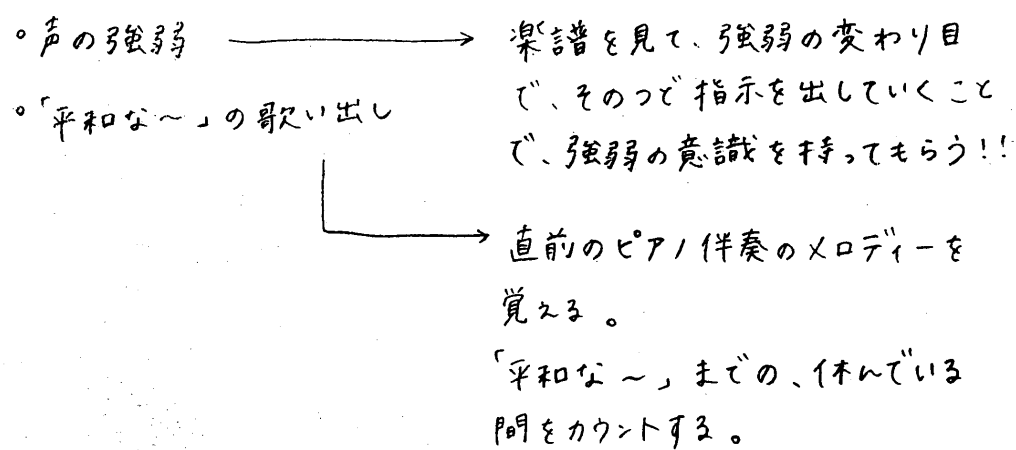 。声の強弱
。「平和な～」の歌い出し
楽譜を見て、強弱の変わり目
で、そのつど指示を出していくこと
で、強弱の意識を持ってもらう!!
直前のピアノ伴奏のメロディーを
覚える。
「平和な～」までの、休んでいる
間をカウントする。